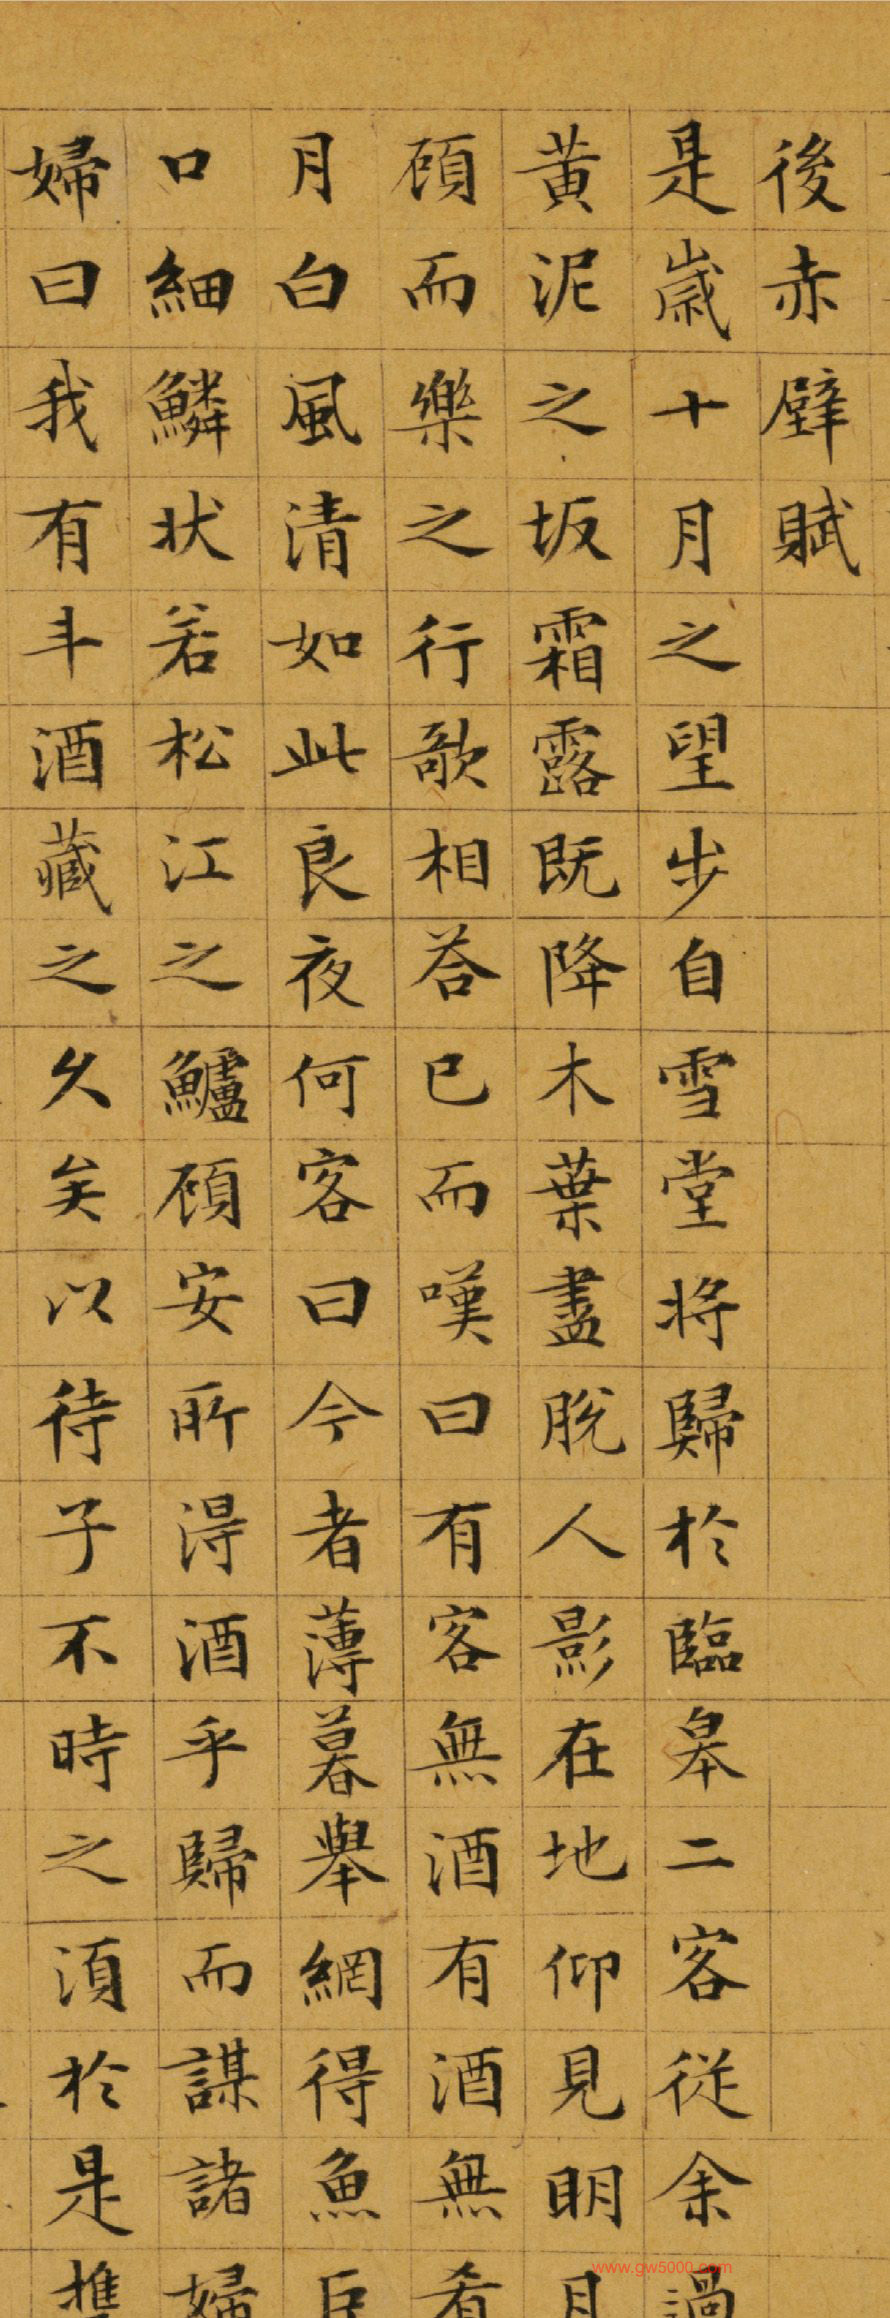 後赤壁賦
是歲十月之望步自雪堂將歸於臨皋二客從余過
黃泥之坂霜露既降木葉盡脫人影在地仰見明月
顧而樂之行歌相荅已而嘆曰有客無酒有酒無肴
月白風清如此良夜何客曰今者薄暮舉網得魚巨
口細鱗狀若松江之鱸顧安所得酒乎歸而謀諸婦
婦曰我有斗酒藏之久矣以待子不時之須於是攜
www.gw5000.com